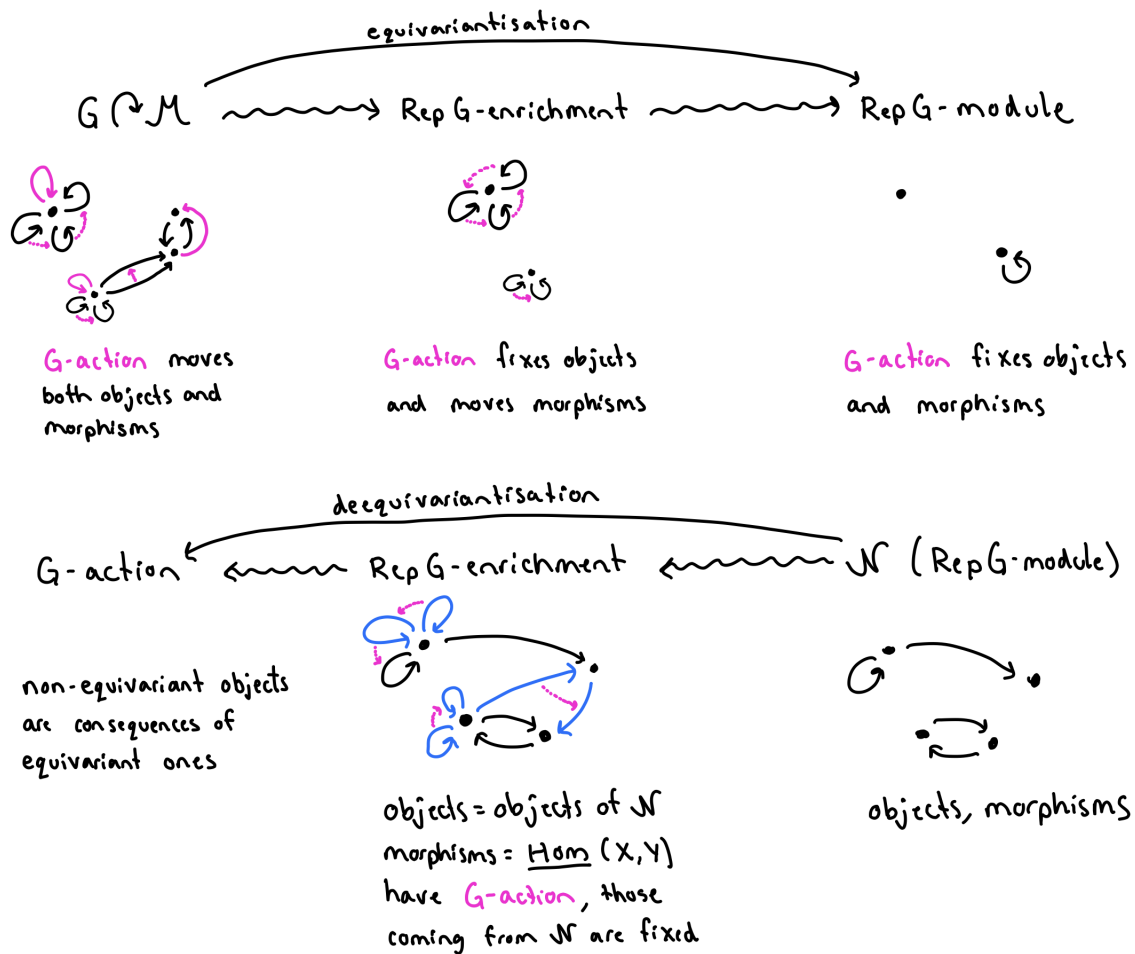 equivariantisation
G ↷ M
Rep G-enrichment
Rep G-module
G-action moves
both objects and
morphisms
G-action fixes objects
and moves morphisms
G-action fixes objects
and morphisms
deequivariantisation
G-action
Rep G-enrichment
N (Rep G-module)
non-equivariant objects
are consequences of
equivariant ones
objects = objects of N
morphisms = Hom (X,Y)
have G-action, those
coming from N are fixed
objects, morphisms